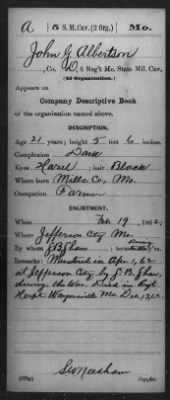 A 5 S.M. Cav. (2 Org.) Mo.
John G Albertson
, Co. D, 5 Reg't Mo. State Mil. Cav.
(2d Organization.)
Appears on
Company Descriptive Book
of the organization named above.
DESCRIPTION.
Age 21 years; height 5 feet 6 inches.
Complexion Dark
Eyes Hazel; hair Black
Where born Miller Co, Mo.
Occupation Farmer
ENLISTMENT.
When Feb. 19, 1862.
Where Jefferson City Mo
By whom J.B. Shaw; term
Remarks: Mustered in Apr 1, 62
at Jefferson City by J. B. Shaw,
during the War. Died in Regt.
Hospt Waynesville Mo. Dec.
Copyist.